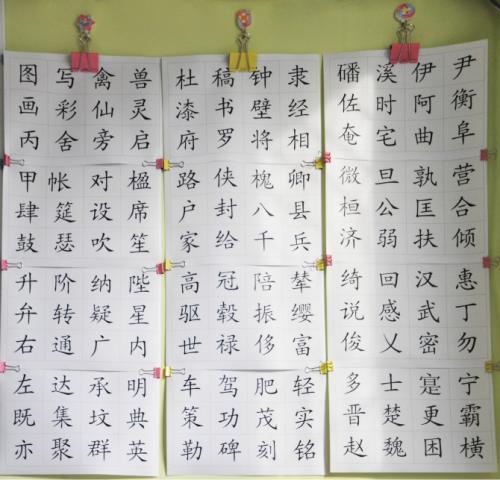 图写禽兽
画彩仙灵
丙舍旁启
甲帐对楹
肆筵设席
鼓瑟吹笙
升阶纳陛
弁转疑星
右通广内
左达承明
既集坟典
亦聚群英
杜稿钟隶
漆书壁经
府罗将相
路侠槐卿
户封八县
家给千兵
高冠陪辇
驱毂振缨
世禄侈富
车驾肥轻
策功茂实
勒碑刻铭
磻溪伊尹
佐时阿衡
奄宅曲阜
微旦孰营
桓公匡合
济弱扶倾
绮回汉惠
说感武丁
俊乂密勿
多士寔宁
晋楚更霸
赵魏困横